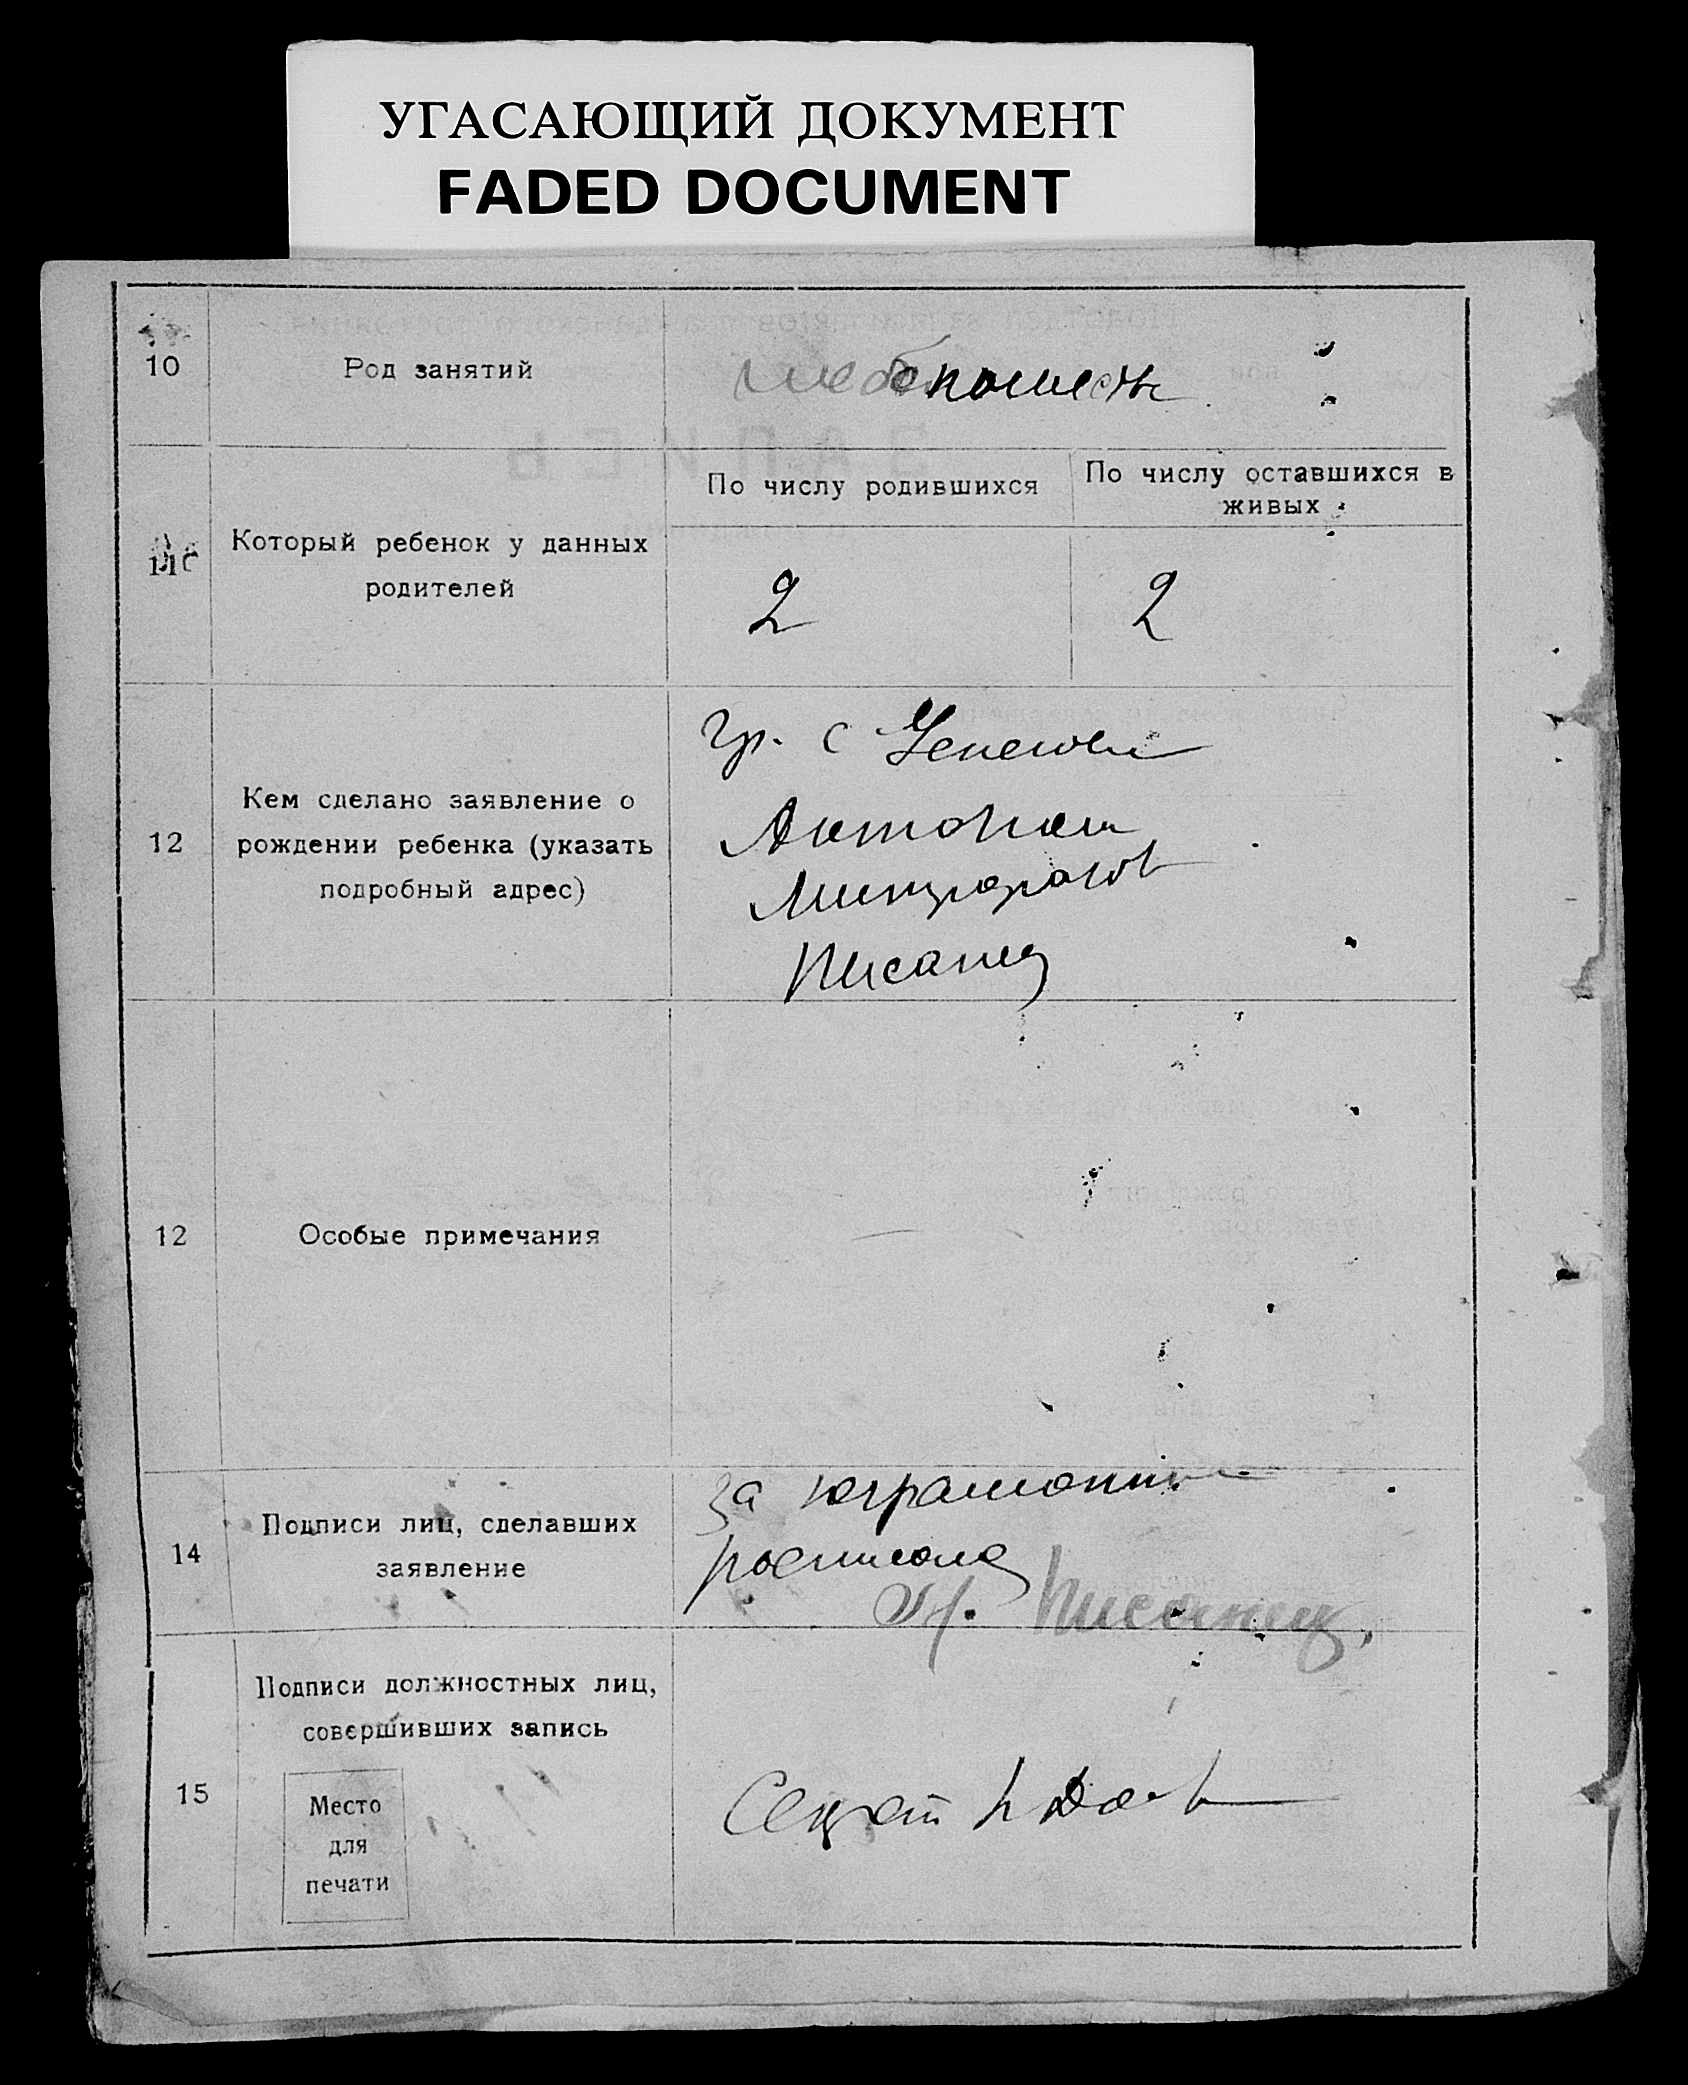 УГАСАЮЩИЙ ДОКУМЕНТ
FADED DOCUMENT
10
Род занятий
хлебопашест
11
Который ребенок у данных
родителей
По числу родившихся
По числу оставшихся в
живых
2
2
12
Кем сделано заявление о
рождении ребенка (указать
подробный адрес)
гр. с
Писанец
12
Особые примечания
—
14
Подписи лиц, сделавших
заявление
за
Писанец
15
Подписи должностных лиц,
совершивших запись
Место
для
печати